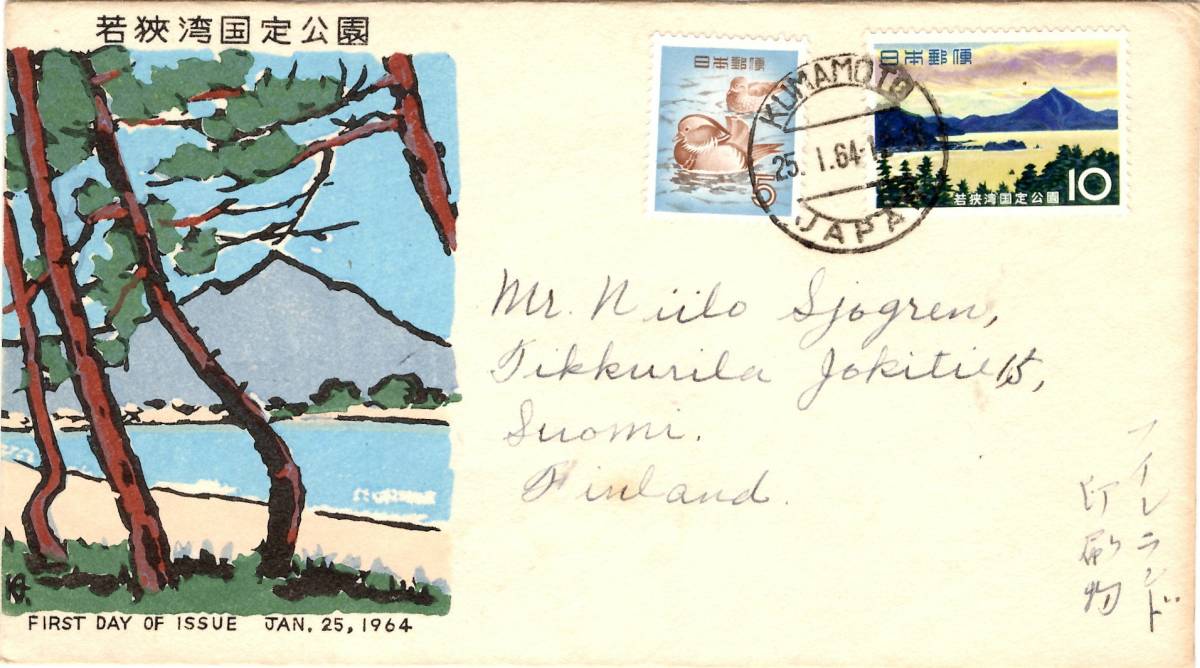 若狹湾国定公園
日本郵便
5
日本郵便
若狹湾国定公園
10
KUMAMOTO
25. I.64-1
JAPAN
Mr. Niilo Sjogren,
Tikkurila Jokitie 15,
Suomi.
Finland.
フィンランド
印刷物
FIRST DAY OF ISSUE JAN. 25, 1964